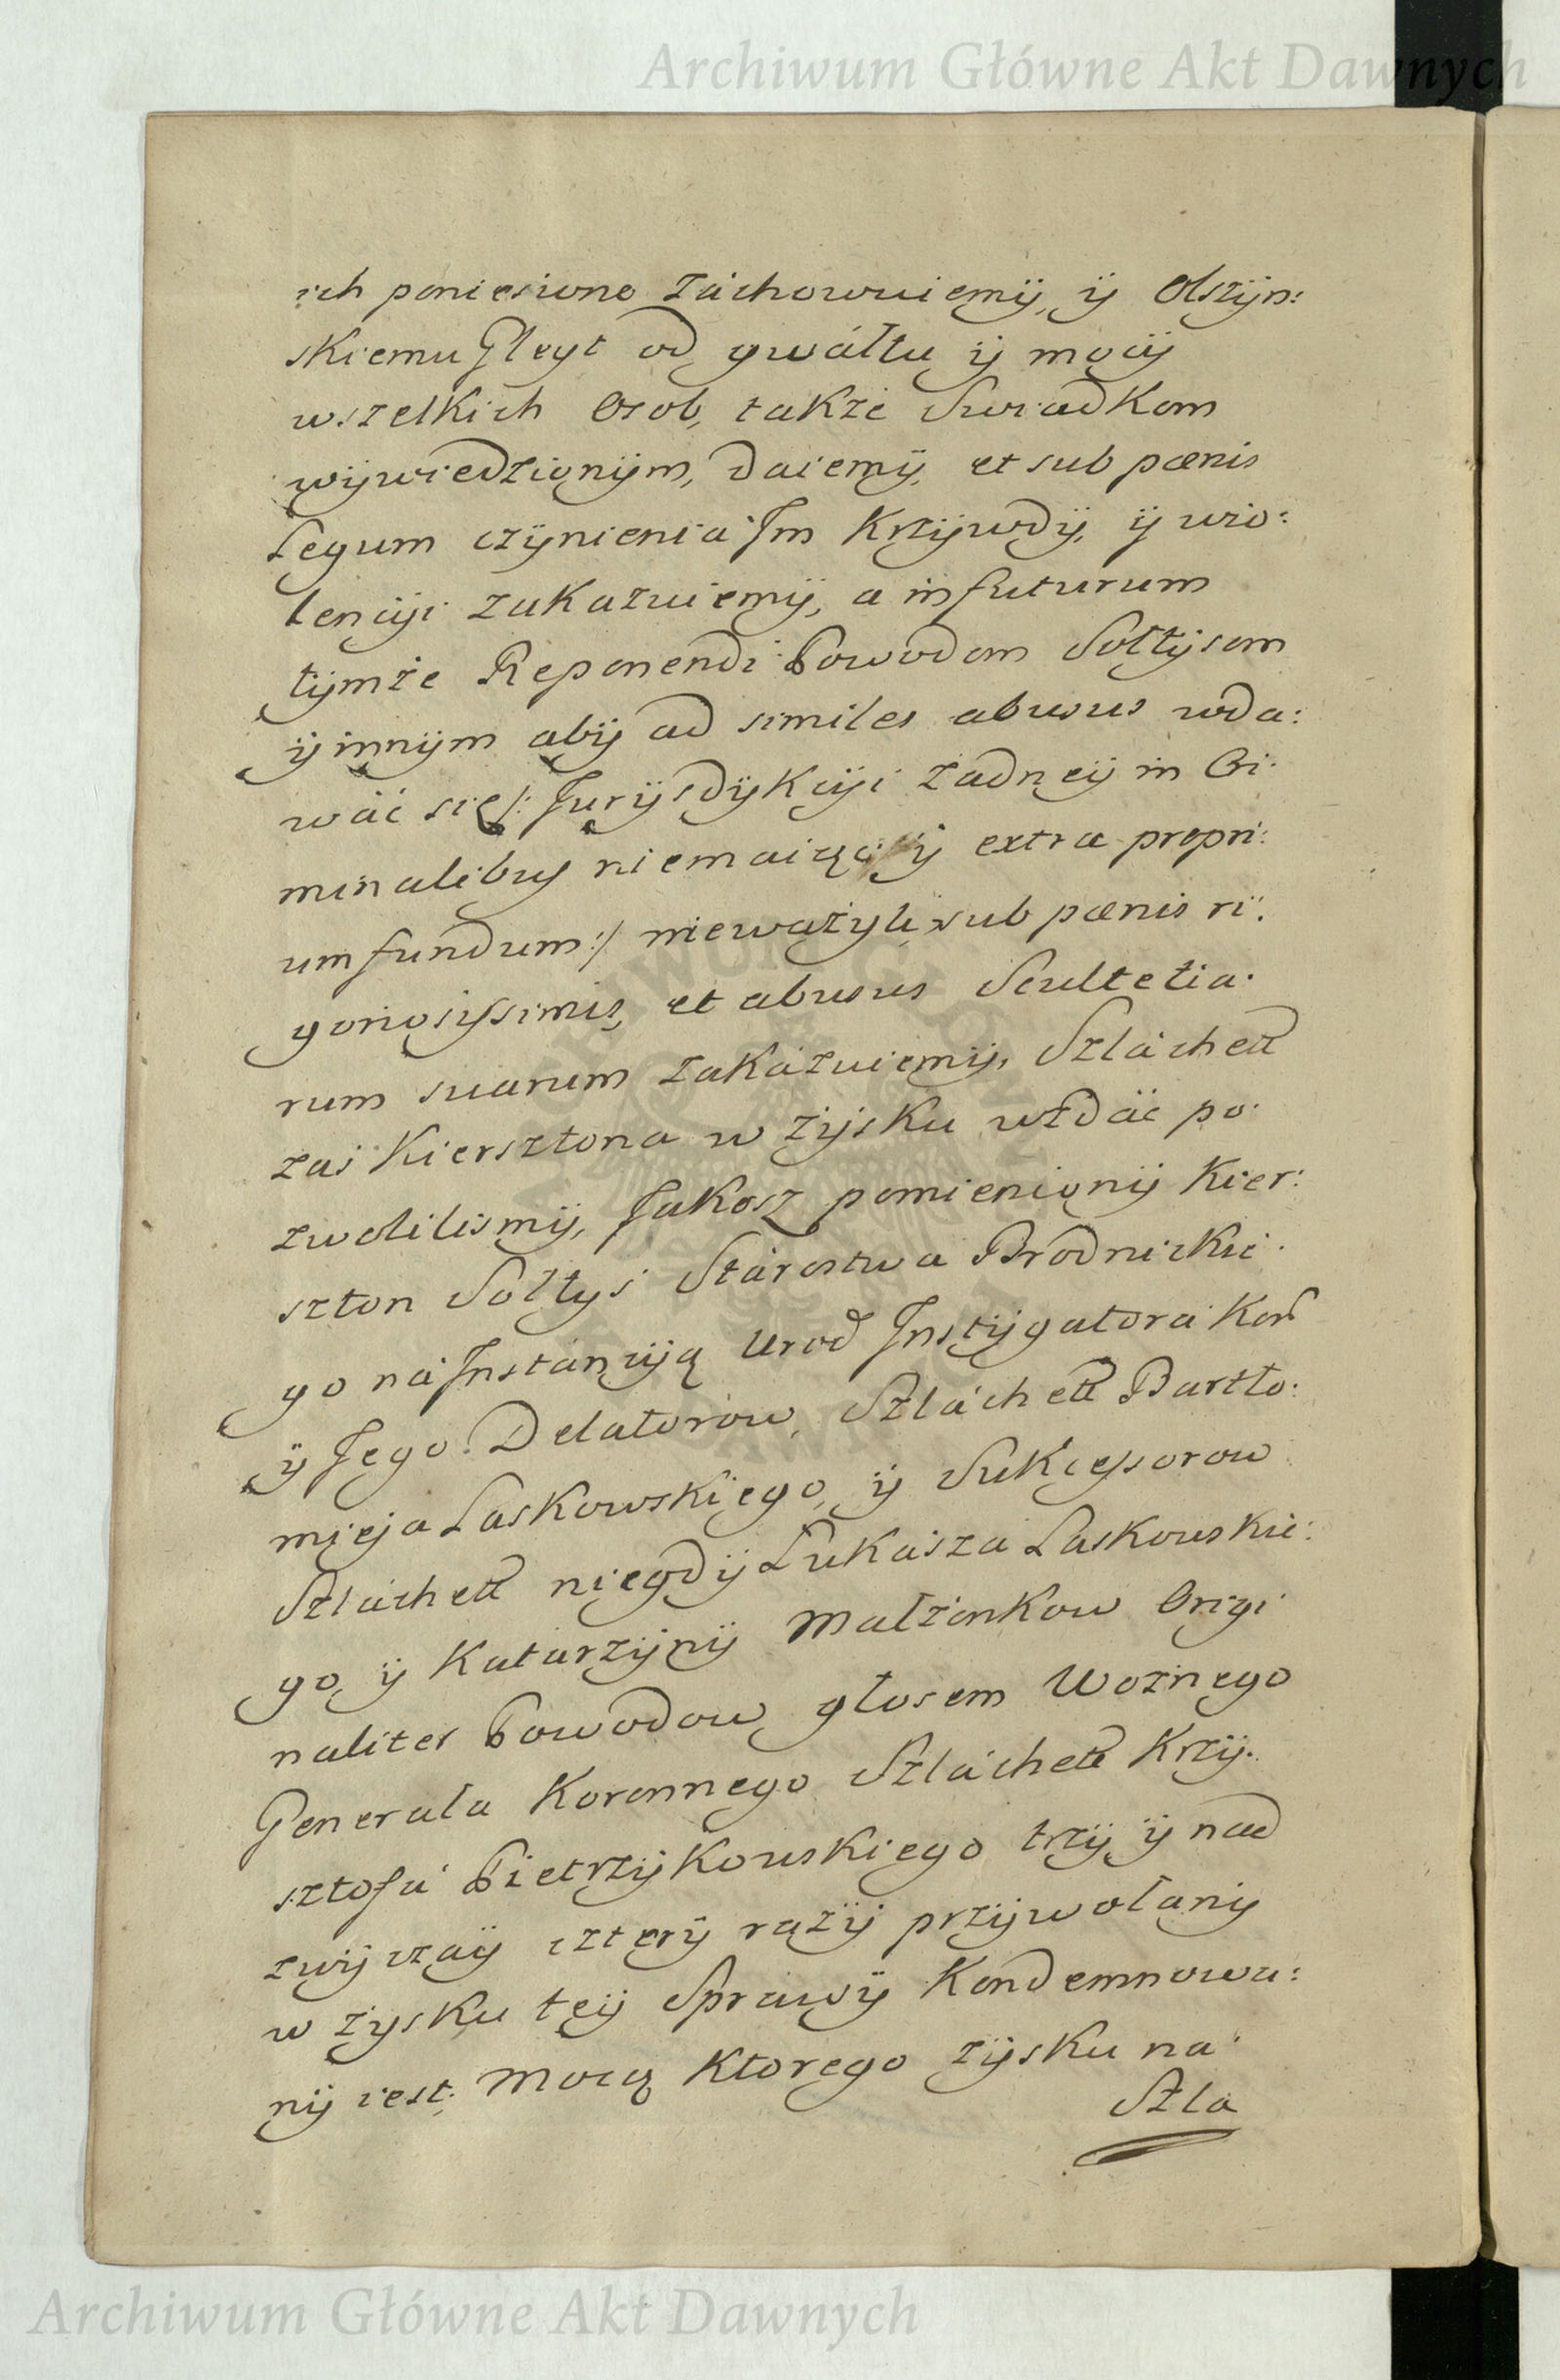 Archiwum Główne Akt Dawnych
ich poniesione zachowuiemÿ, ÿ Olszÿn:
skiemu Gleyt od gwáłtu ÿ mocÿ
wszelkich Osob, także Swiadkom
wÿwiedzionÿm, daiemÿ, et sub pœnis
Legum czÿnienia Im Krzÿwdÿ, ÿ wio:
lencÿi zakazuiemÿ, a in futurum
tÿmże Reponendi Powodom Sołtÿsom
ÿ innÿm abÿ ad similes abusus wda:
wáć się /: Jurÿsdÿkcÿi żadneÿ in Cri:
minalibus niemaiącÿ ÿ extra propri:
um fundum :/ nieważyli, sub pœnis ri:
gorosissimis, et abusus Scultetia:
rum suarum zakázuiemÿ, Szláchett
zaś Kiersztona w zÿsku wzdáć po:
zwolilismÿ, Jakosz pomienionÿ Kier:
szton Sołtys Stárostwa Brodnickie:
go ná Instáncÿą Urod Instÿgatorá Kor
ÿ Jego Delatorow, Szláchett Bartło:
mieja Laskowskiego, ÿ Sukcessorow
Szláchett niegdÿ Łukászá Laskowskie:
go, ÿ Katarzÿnÿ Małżonkow Origi:
naliter Powodow, głosem Woźnego
Generała Koronnego Szláchett Krzÿ:
sztofá Pietrzÿkowskiego trzÿ ÿ nad
zwÿczaÿ czterÿ razÿ przÿwołanÿ
w zysku teÿ Sprawÿ Kondemnowa:
nÿ iest. Mocą ktorego zÿsku na:
Szla
Archiwum Główne Akt Dawnych